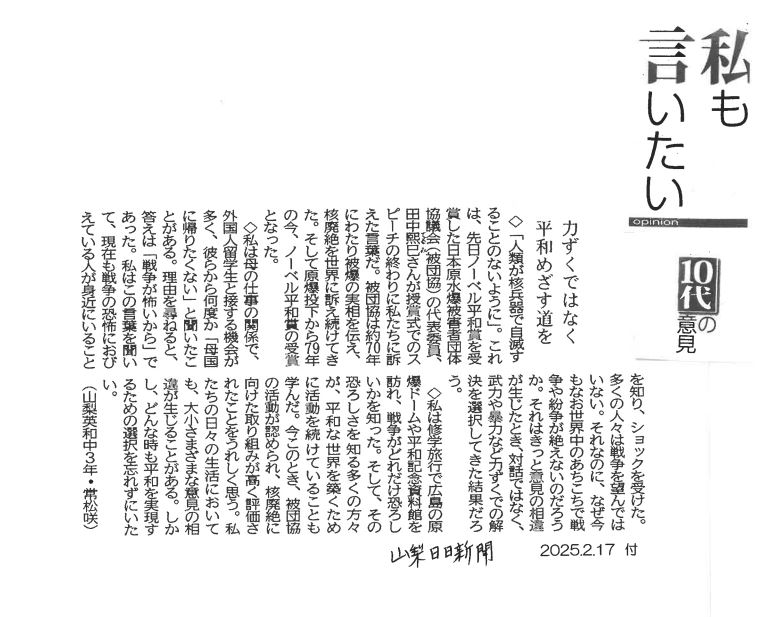 私も
言いたい
opinion
10代の意見
力ずくではなく
平和めざす道を
◇「人類が核兵器で自滅す
ることのないように」。これ
は、先日ノーベル平和賞を受
賞した日本原水爆被害者団体
協議会（被団協）の代表委員、
田中熙巳さんが授賞式でのス
ピーチの終わりに私たちに訴
えた言葉だ。被団協は約70年
にわたり被爆の実相を伝え、
核廃絶を世界に訴え続けてき
た。そして原爆投下から79年
の今、ノーベル平和賞の受賞
となった。
◇私は母の仕事の関係で、
外国人留学生と接する機会が
多く、彼らから何度か「母国
に帰りたくない」と聞いたこ
とがある。理由を尋ねると、
答えは「戦争が怖いから」で
あった。私はこの言葉を聞い
て、現在も戦争の恐怖におび
えている人が身近にいること
を知り、ショックを受けた。
多くの人々は戦争を望んでは
いない。それなのに、なぜ今
もなお世界中のあちこちで戦
争や紛争が絶えないのだろう
か。それはきっと意見の相違
が生じたとき、対話ではなく、
武力や暴力など力ずくでの解
決を選択してきた結果だろ
う。
◇私は修学旅行で広島の原
爆ドームや平和記念資料館を
訪れ、戦争がどれだけ恐ろし
いかを知った。そして、その
恐ろしさを知る多くの方々
が、平和な世界を築くため
に活動を続けていることも
学んだ。今このとき、被団協
の活動が認められ、核廃絶に
向けた取り組みが高く評価さ
れたことをうれしく思う。私
たちの日々の生活において
も、大小さまざまな意見の相
違が生じることがある。しか
し、どんな時も平和を実現す
るための選択を忘れずにいた
い。
（山梨英和中3年・常松咲）
山梨日日新聞 2025.2.17 付